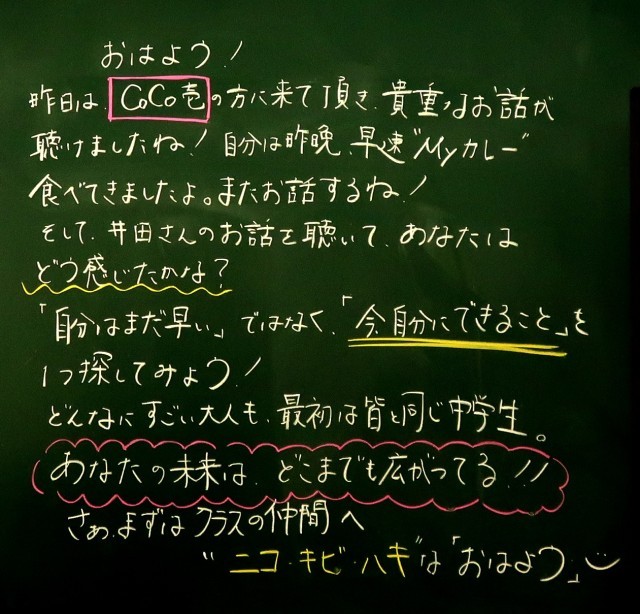 おはよう！
昨日は、CoCo壱の方に来て頂き、貴重なお話が
聴けましたね！自分は昨晩、早速"Myカレー"
食べてきましたよ。またお話するね！
そして、井田さんのお話を聴いて、あなたは
どう感じたかな？
「自分はまだ早い」ではなく、「今、自分にできること」を
1つ探してみよう！
どんなにすごい大人も、最初は皆と同じ中学生。
あなたの未来は、どこまでも広がってる！！
さぁ、まずはクラスの仲間へ
"ニコ・キビ・ハキ"な「おはよう」